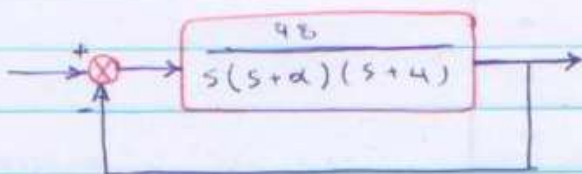 +
48
s(s+α)(s+4)
-